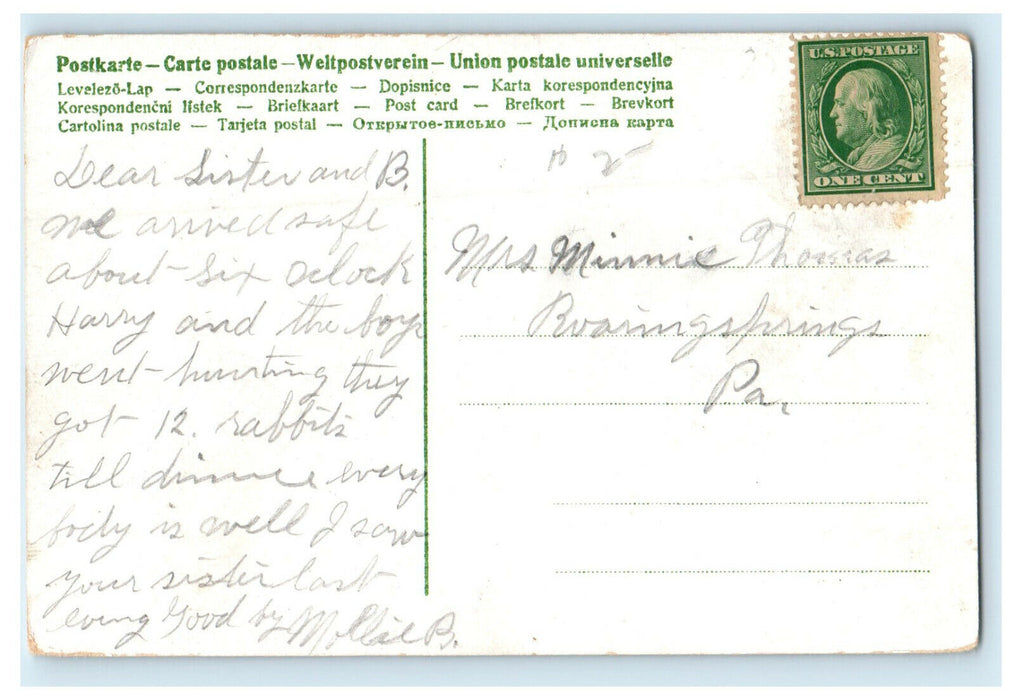 Postkarte — Carte postale — Weltpostverein — Union postale universelle
Levelező-Lap — Correspondenzkarte — Dopisnice — Karta korespondencyjna
Korespondenční lístek — Briefkaart — Post card — Brefkort — Brevkort
Cartolina postale — Tarjeta postal — Открытое-письмо — Дописна карта
U.S. POSTAGE
ONE CENT
Dear Sister and B.
we arrived safe
about six oclock
Harry and the boys
went hunting they
got 12. rabbits
till dinner every
body is well I saw
your sister last
eving Good by Mollie B.
Mrs Minnie Thomas
Roaringsprings
Pa.